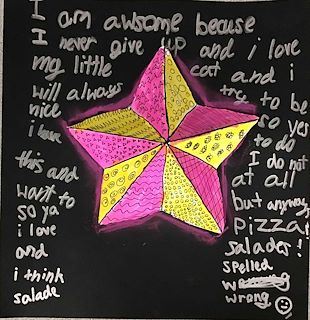 I am awsome becuse
I never give up and i love
my little cat and i
will always try to be
nice so yes
i have to do
this and I do not
want to at all
so ya but anyway
i love pizza!
and salades!
i think spelled
salade wrong
wrong